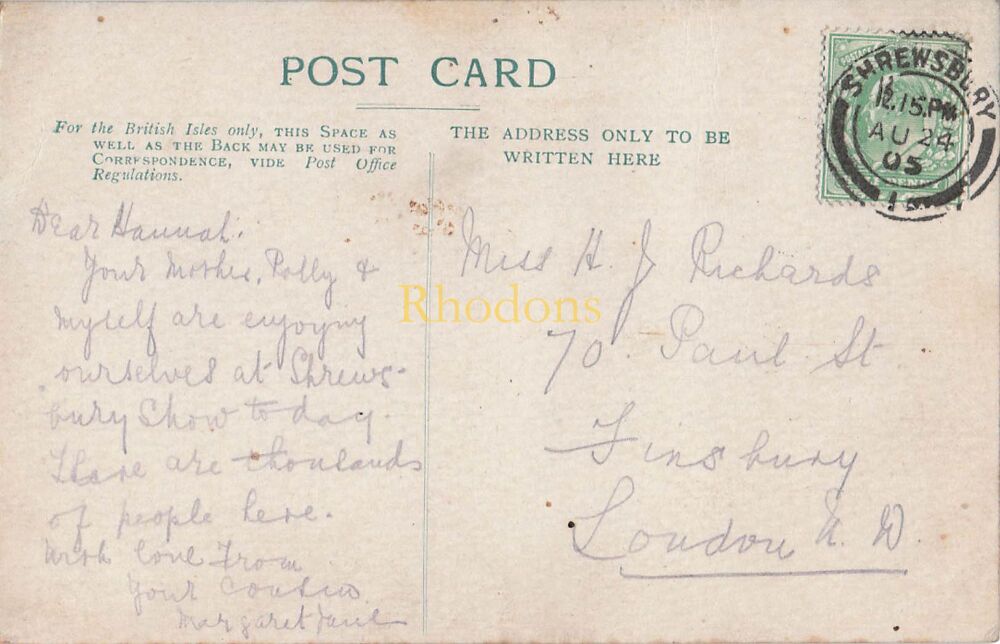 POST CARD
For the British Isles only, THIS SPACE AS
WELL AS THE BACK MAY BE USED FOR
CORRESPONDENCE, VIDE Post Office
Regulations.
THE ADDRESS ONLY TO BE
WRITTEN HERE
SHREWSBURY
12.15PM
AU 24
05
PENNY
Dear Hannah.
Your Mother, Polly &
myself are enjoying
ourselves at Shrews-
bury Show to day.
There are thousands
of people here.
With love From
Your Cousin
Margaret
Miss H. J Richards
70 Paul St
Finsbury
London N. W.
Rhodons